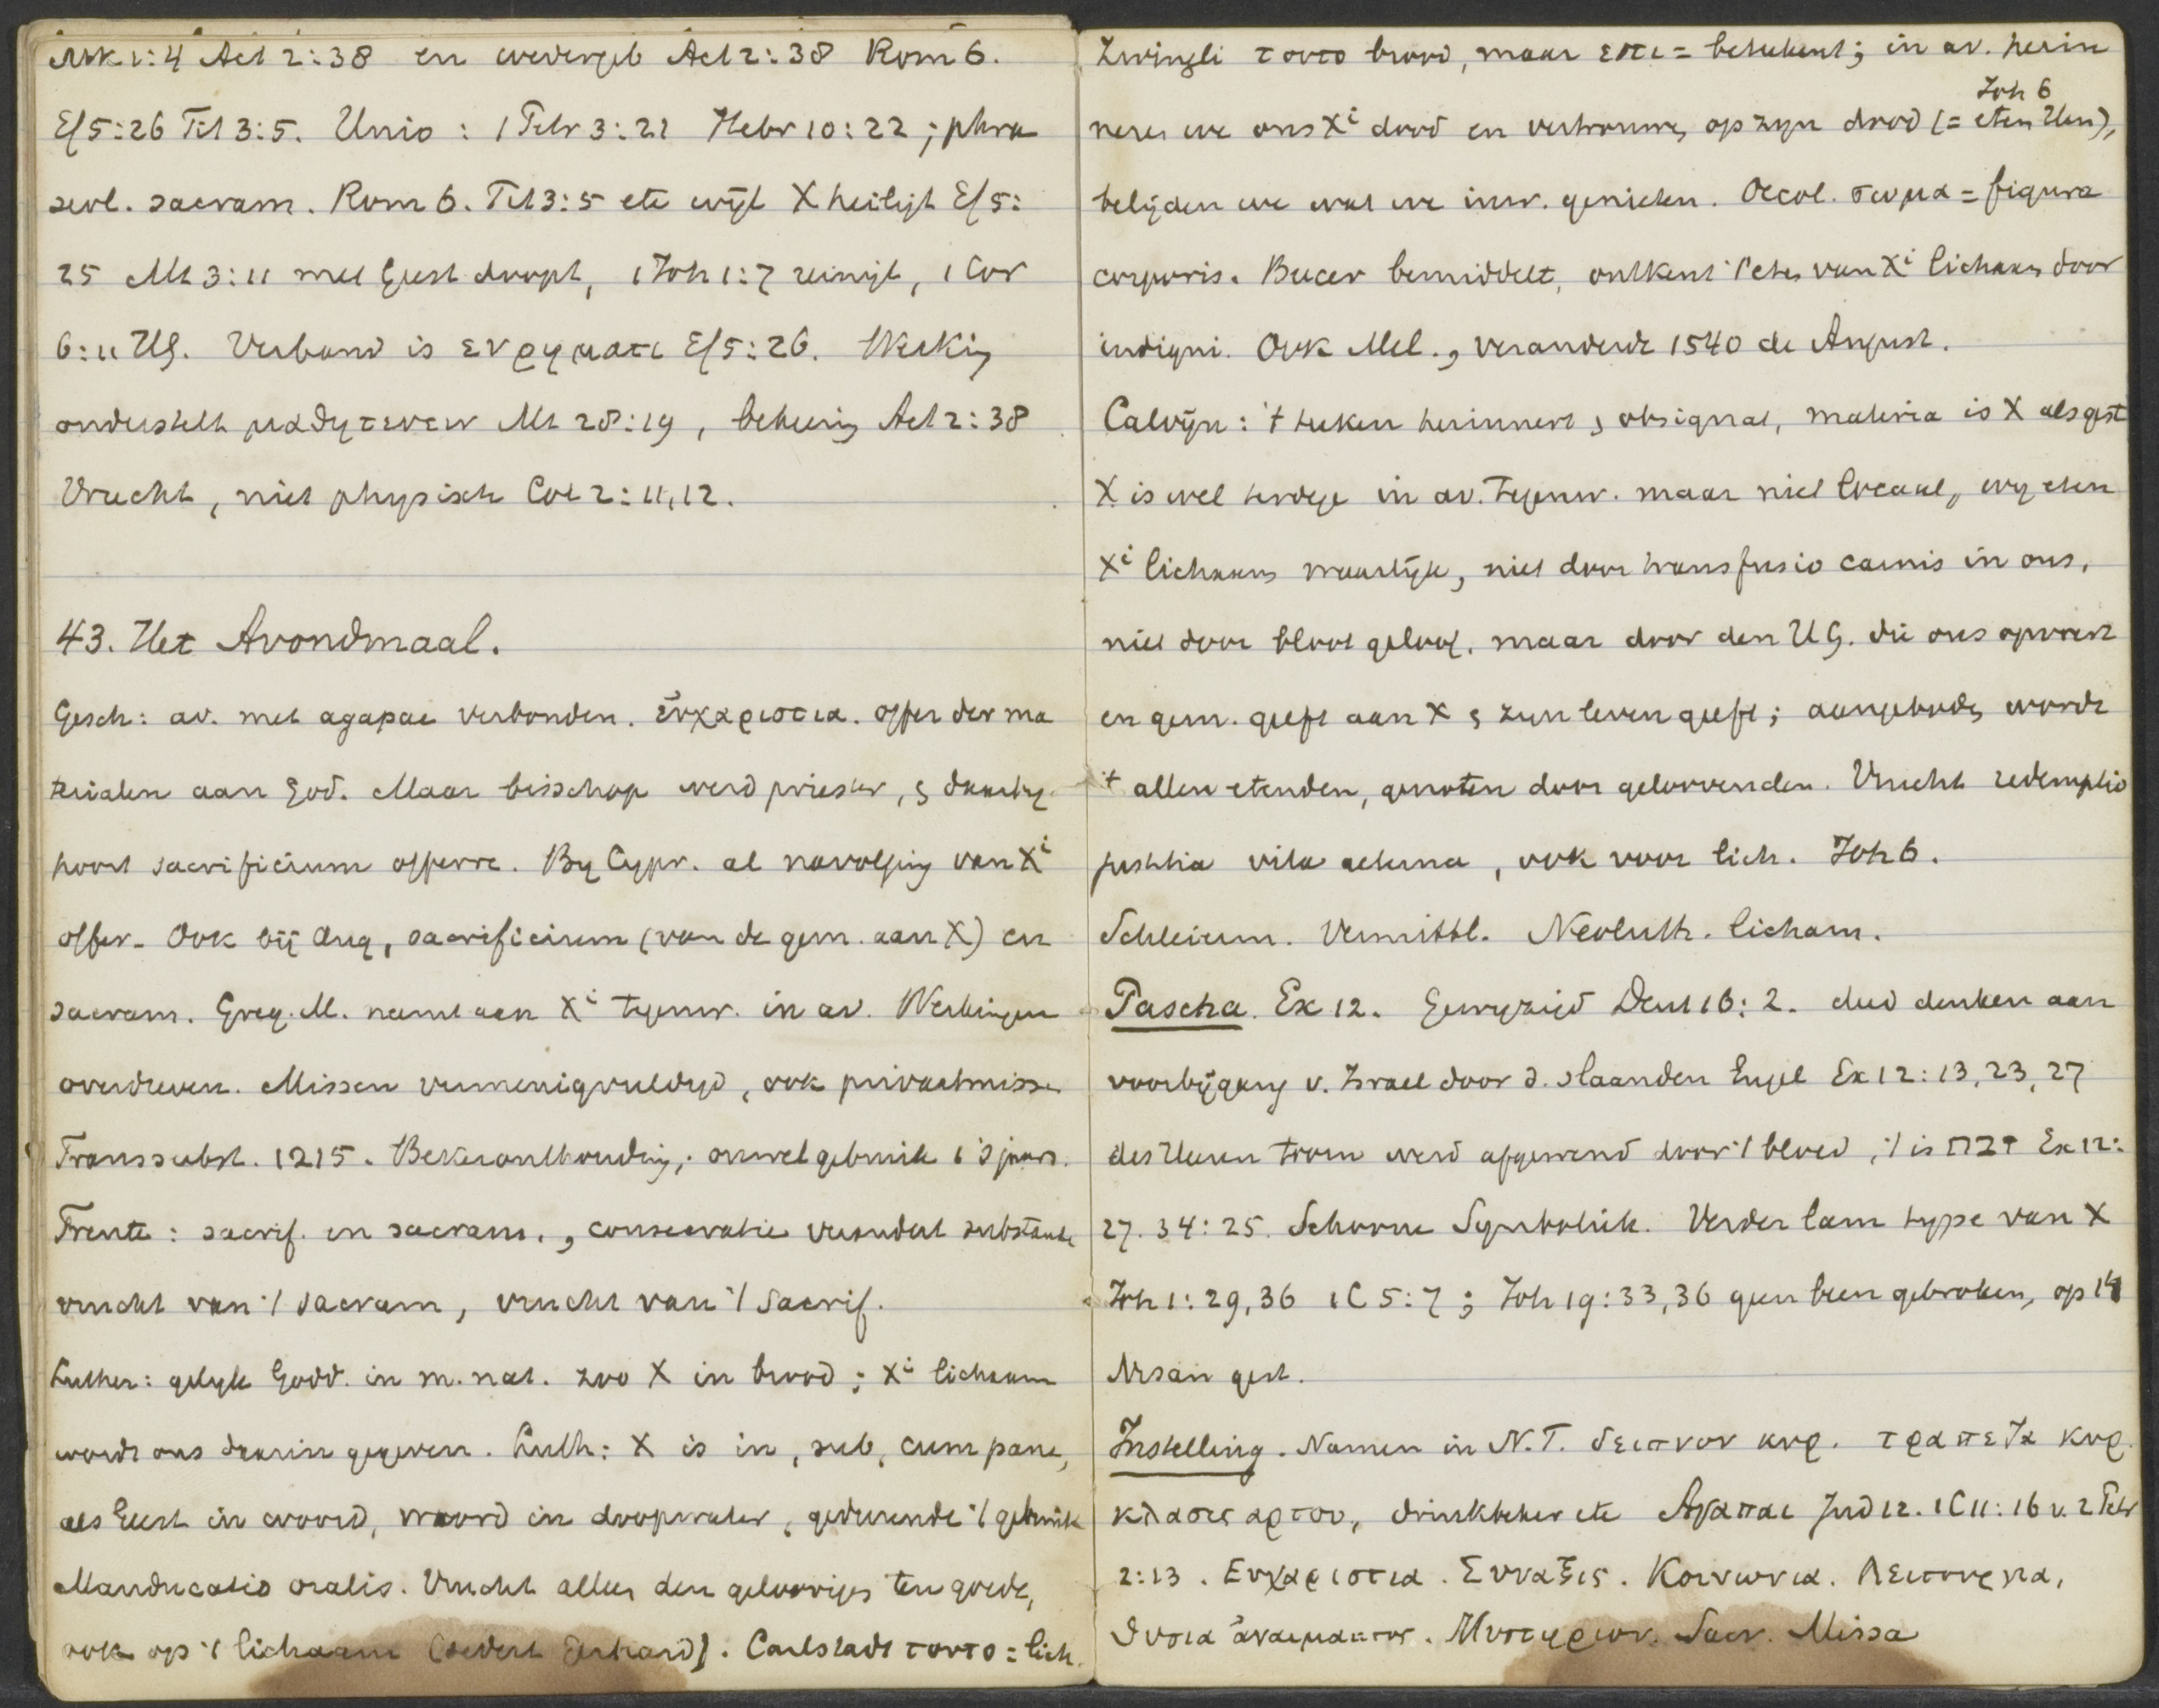 Mk 1:4 Act 2:38 en wedergeb Act 2:38 Rom 6.
Ef 5:26 Tit 3:5. Unio: 1 Petr 3:21 Hebr 10:22; phra
seol. sacram. Rom 6. Tit 3:5 etc wijl X heiligt Ef 5:
25 Mt 3:11 met Geest doopt, 1 Joh 1:7 reinigt, 1 Cor
6:11 HG. Verband is εν ρηματι Ef 5:26. Werking
onderstelt μαθητευειν Mt 28:19, bekeering Act 2:38
Vrucht, niet physisch Col 2:11,12.
43. Het Avondmaal.
Gesch: av. met agapae verbonden. ευχαριστια. offer der ma
terialen aan God. Maar bisschop werd priester, & daarbij
hoort sacrificium offerre. By Cypr. al navolging van Xi
offer. Ook bij Aug, sacrificium (van de gem. aan X) en
sacram. Greg. M. neemt aan Xi tegenw. in av. Werkingen
overdreven. Missen vermenigvuldigd, ook privaatmissen
Transsubst. 1215. Bekeronthouding; onwel gebruik 1 's jaars.
Trente: sacrif. en sacram., consecratie verandert substantie
vrucht van 't sacram, vrucht van 't sacrif.
Luther: gelyk Godd. in m. nat. zoo X in brood; Xi lichaam
wordt ons daarin gegeven. Luth: X is in, sub, cum pane,
als Geest in woord, woord in doopwater, gedurende 't gebruik
Manducatio oralis. Vrucht alleen den geloovigen ten goede,
ook op 't lichaam (sedert Gerhard). Carlstadt τουτο = lich.
Zwingli τουτο brood, maar εστι = beteekent; in av. herin
neren we ons Xi dood en vertrouwen op zijn dood (= eten Hem), Joh 6
belijden we wat we inw. genieten. Oecol. σωμα = figura
corporis. Bucer bemiddelt, ontkent 't eten van Xi lichaam door
indigni. Ook Mel., veranderde 1540 de August.
Calvijn: 't teeken herinnert & obsignat, materia is X als gest
X is wel terdege in av. tegenw. maar niet locaal, wy eten
Xi lichaam waarlijk, niet door transfusio carnis in ons,
niet door bloot geloof, maar door den HG. die ons opvoert
en gem. geeft aan X & zijn leven geeft; aangeboden wordt
't allen etenden, genoten door geloovenden. Vrucht redemptio
justitia vita aeterna, ook voor lich. Joh 6.
Schleierm. Vermittl. Neoluth. licham.
Pascha. Ex 12. Gewyzigd Deut 16:2. deed denken aan
voorbijgang v. Israel door d. slaanden Engel Ex 12:13,23,27
des Heeren toorn werd afgewend door 't bloed, 't is זבח Ex 12:
27. 34:25. Schoone Symboliek. Verder lam type van X
Joh 1:29,36 1C 5:7; Joh 19:33,36 geen been gebroken, op 14
Nisan gest.
Instelling. Namen in N.T. δειπνον κυρ. τραπεζα κυρ.
κλασις αρτου, drinkbeker etc Αγαπαι Jud 12. 1C 11:16 v. 2 Petr
2:13. Ευχαριστια. Συναξις. Κοινωνια. Λειτουργια,
θυσια αναιμακτος. Μυστηριον. Sacr. Missa